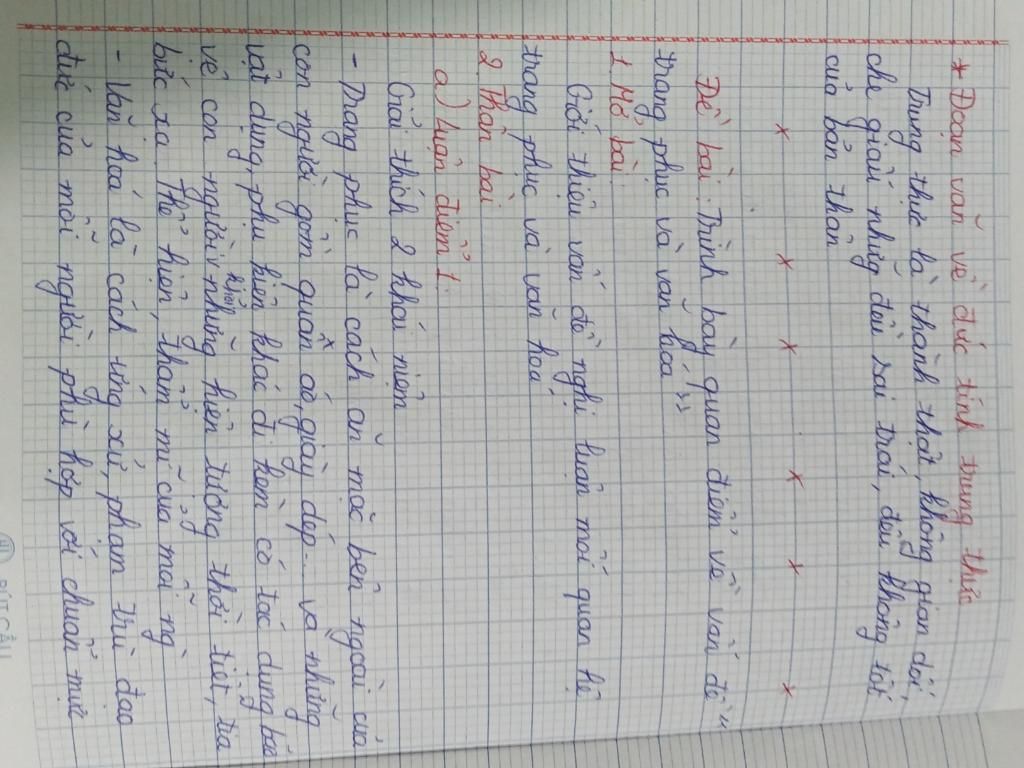 * Đoạn văn về đức tính trung thực
Trung thực là thành thật, không gian dối,
che giấu những điều sai trái, điều không tốt
của bản thân
x x x x x x
Đề bài: Trình bày quan điểm về vấn đề "
trang phục và văn hóa"
1. Mở bài:
Giới thiệu vấn đề nghị luận mối quan hệ
trang phục và văn hoá
2. Thân bài
a) Luận điểm 1:
Giải thích 2 khái niệm
- Trang phục là cách ăn mặc bên ngoài của
con người gồm quần áo, giày dép... và những
vật dụng, phụ kiện khác đi kèm có tác dụng bảo
vệ con người khỏi những hiện tượng thời tiết, tia
bức xạ. Thể hiện, thẩm mĩ của mỗi ng
- Văn hoá là cách ứng xử, phạm trù đạo
đức của mỗi người phù hợp với chuẩn mực
BÚT CẦU